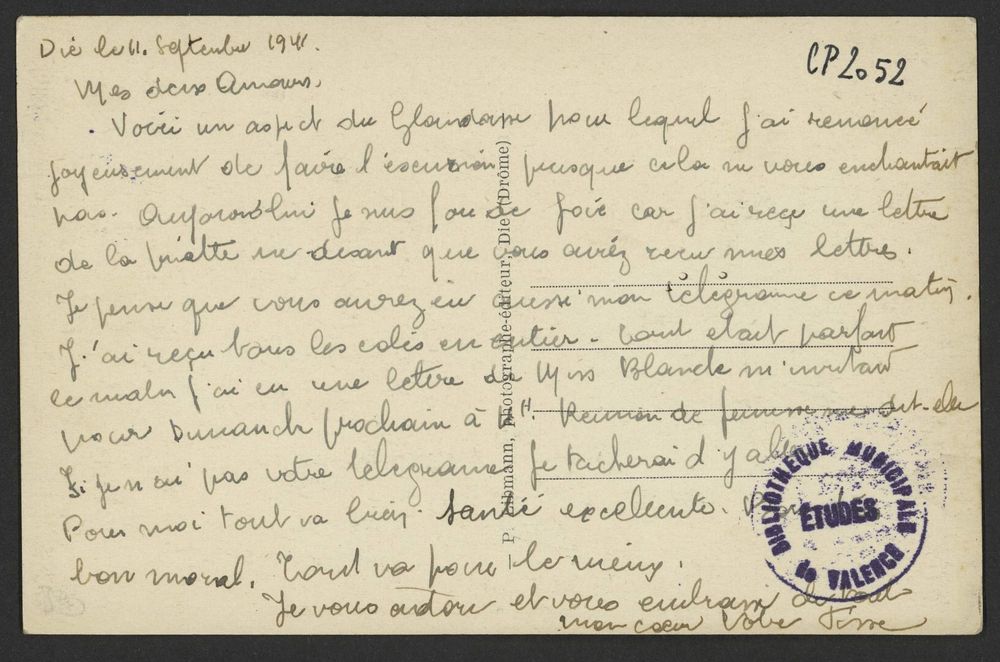 Dié le 11. Septembre 1941.
CP2052
Mes deux Amours.
. Voici un aspect du Glandasse pour lequel j'ai renoncé
joyeusement de faire l'excursion puisque cela ne vous enchantait
pas. Aujourd'hui je suis fou de joie car j'ai reçu une lettre
de la me disant que vous aviez reçu mes lettres.
Je pense que vous aurez eu aussi mon télégramme ce matin.
J'ai reçu tous les colis en entier. Tout était parfait
ce matin j'ai eu une lettre de Miss Blande m'invitant
pour Dimanche prochain à H. Reunion de me dit-elle
Si je n'ai pas votre telegramme je tacherai d'y aller
Pour moi tout va bien. Santé excellente.
bon moral. Tout va pour le mieux.
Je vous adore et vous embrasse de tout
mon cœur Votre
P. Photographe-éditeur, Die (Drôme)
BIBLIOTHÈQUE MUNICIPALE
ÉTUDES
de VALENCE